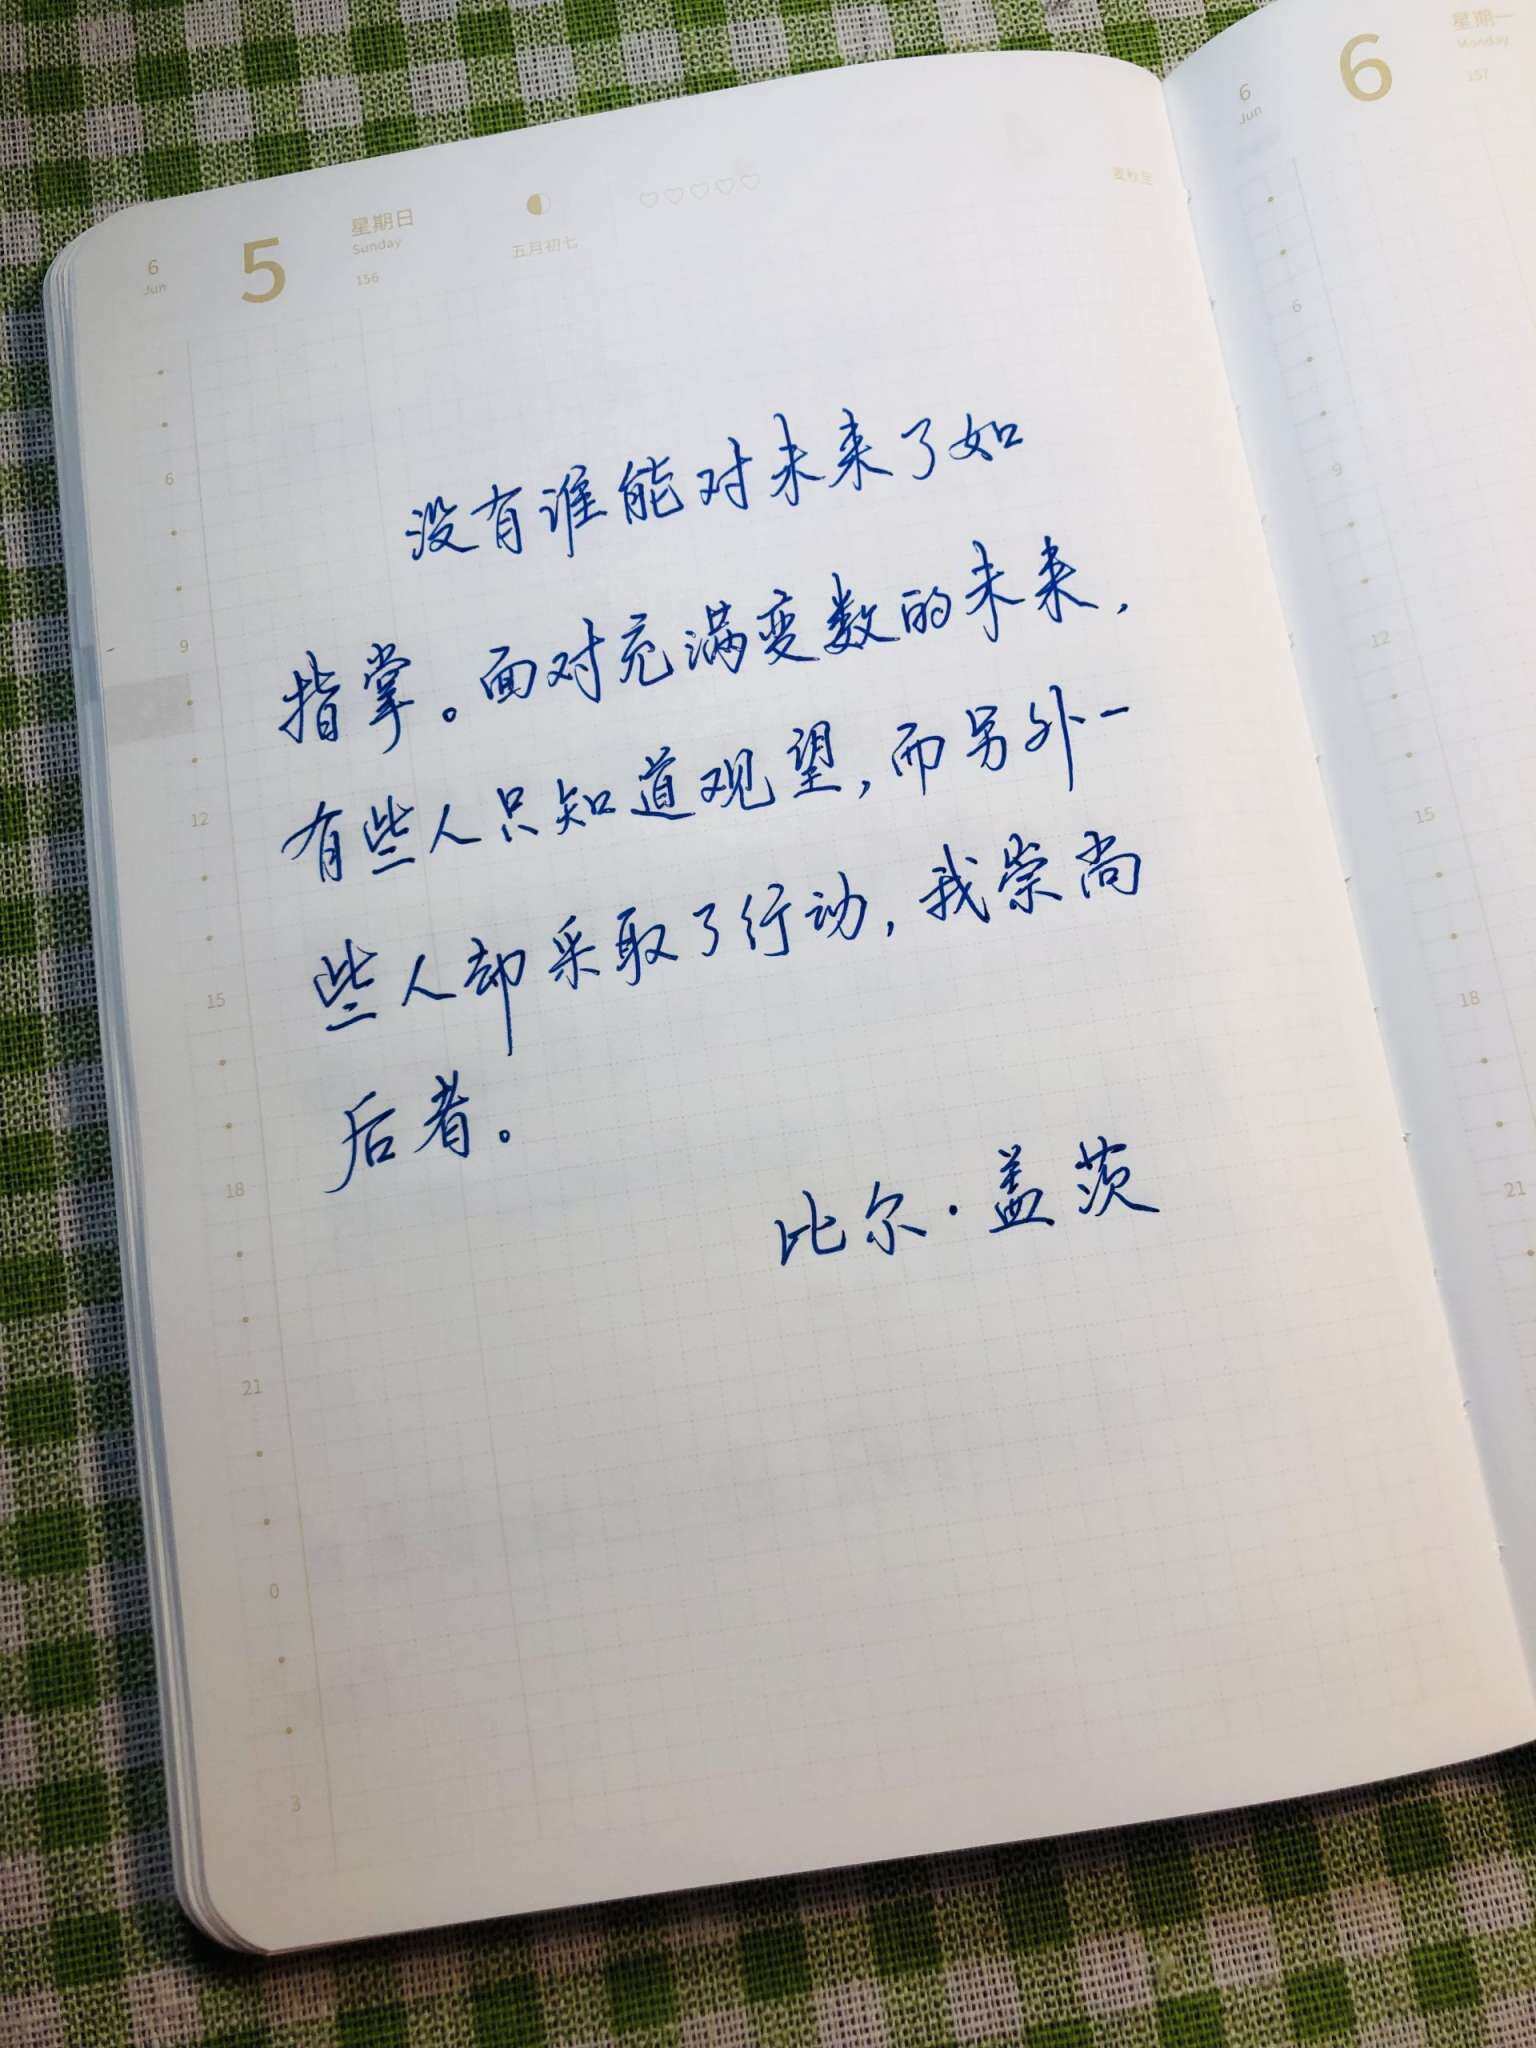 6
Jun
5
星期日
Sunday
156
五月初七
没有谁能对未来了如
指掌。面对充满变数的未来，
有些人只知道观望，而另外一
些人却采取了行动，我崇尚
后者。
比尔·盖茨
6
9
12
15
18
21
0
3
6
Jun
6
星期一
Monday
157
6
9
12
15
18
21